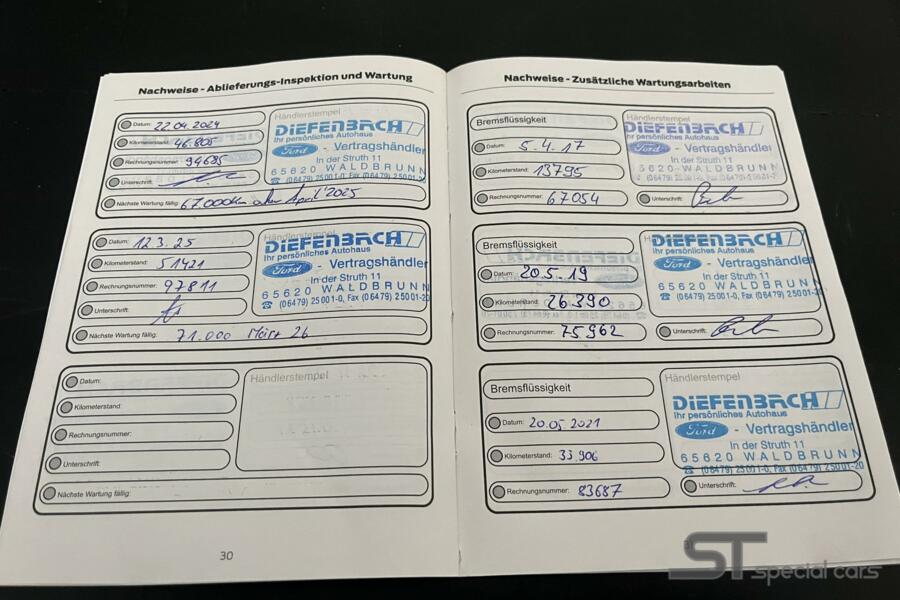 Nachweise - Ablieferungs-Inspektion und Wartung
Datum: 22.04.2024
Kilometerstand: 46.805
Rechnungsnummer: 94685
Unterschrift:
Nächste Wartung fällig: 67.000km oder April 2025
Händlerstempel
DIEFENBACH
Ihr persönliches Autohaus
Ford - Vertragshändler
In der Struth 11
65620 WALDBRUNN
☎ (06479) 25001-0, Fax (06479) 25001-20
Datum: 12.3.25
Kilometerstand: 51421
Rechnungsnummer: 97811
Unterschrift:
Nächste Wartung fällig: 71.000 März 26
Händlerstempel
DIEFENBACH
Ihr persönliches Autohaus
Ford - Vertragshändler
In der Struth 11
65620 WALDBRUNN
☎ (06479) 25001-0, Fax (06479) 25001-20
Datum:
Kilometerstand:
Rechnungsnummer:
Unterschrift:
Nächste Wartung fällig:
Händlerstempel
30
Nachweise - Zusätzliche Wartungsarbeiten
Bremsflüssigkeit
Datum: 5.4.17
Kilometerstand: 13795
Rechnungsnummer: 67054
Händlerstempel
DIEFENBACH
Ihr persönliches Autohaus
Ford - Vertragshändler
In der Struth 11
65620 WALDBRUNN
☎ (06479) 25001-0, Fax (06479) 25001-21
Unterschrift:
Bremsflüssigkeit
Datum: 20.5.19
Kilometerstand: 26.390
Rechnungsnummer: 75962
Händlerstempel
DIEFENBACH
Ihr persönliches Autohaus
Ford - Vertragshändler
In der Struth 11
65620 WALDBRUNN
☎ (06479) 25001-0, Fax (06479) 25001-20
Unterschrift:
Bremsflüssigkeit
Datum: 20.05.2021
Kilometerstand: 33.906
Rechnungsnummer: 83687
Händlerstempel
DIEFENBACH
Ihr persönliches Autohaus
Ford - Vertragshändler
In der Struth 11
65620 WALDBRUNN
☎ (06479) 25001-0, Fax (06479) 25001-20
Unterschrift:
ST
special cars